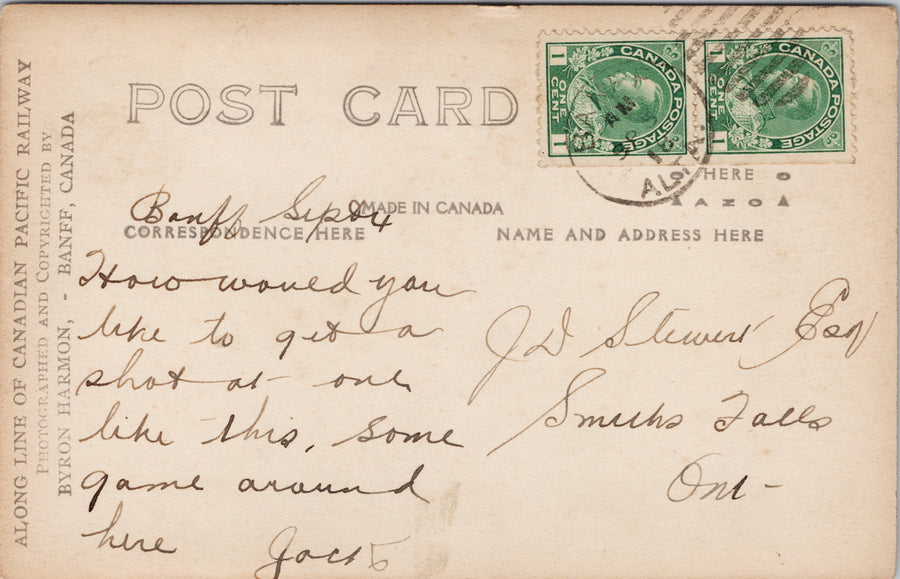 ALONG LINE OF CANADIAN PACIFIC RAILWAY
PHOTOGRAPHED AND COPYRIGHTED BY
BYRON HARMON, - BANFF, CANADA
POST CARD
1 CANADA POSTAGE 1
ONE CENT
1 CANADA POSTAGE 1
ONE CENT
ALTA.
HERE
AZO
MADE IN CANADA
Banff Sept 4
CORRESPONDENCE HERE
NAME AND ADDRESS HERE
How would you
like to get a
shot at one
like this, some
game around
here Jack
J D Stewart Esq
Smiths Falls
Ont-